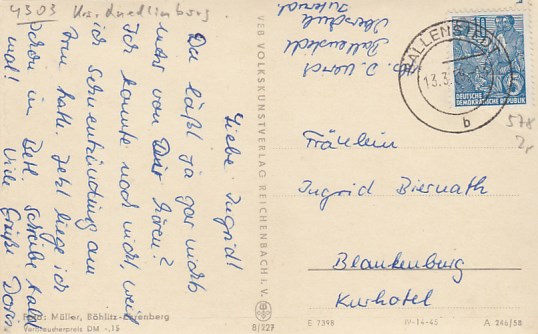 4303 Krs. Quedlinburg
Liebe Ingrid!
Du läßt ja gar nichts
mehr von Dir hören?
Ich konnte noch nicht, weil
ich Sehnentzündung am
Arm hatte. Jetzt liege ich
schon im Bett. Schreibe bald
mal! Viele Grüße Doris
Foto: Müller, Böhlitz-Ehrenberg
Verbraucherpreis DM -.15
8/227
VEB VOLKSKUNSTVERLAG REICHENBACH I. V.
Ballenstedt
Oberschule
Internat
BALLENSTEDT
13.3.
b
10
5
DEUTSCHE
DEMOKRATISCHE REPUBLIK
578
Fräulein
Ingrid Biernath
Blankenburg
Kurhotel
E 7398
IV-14-45
A 246/58